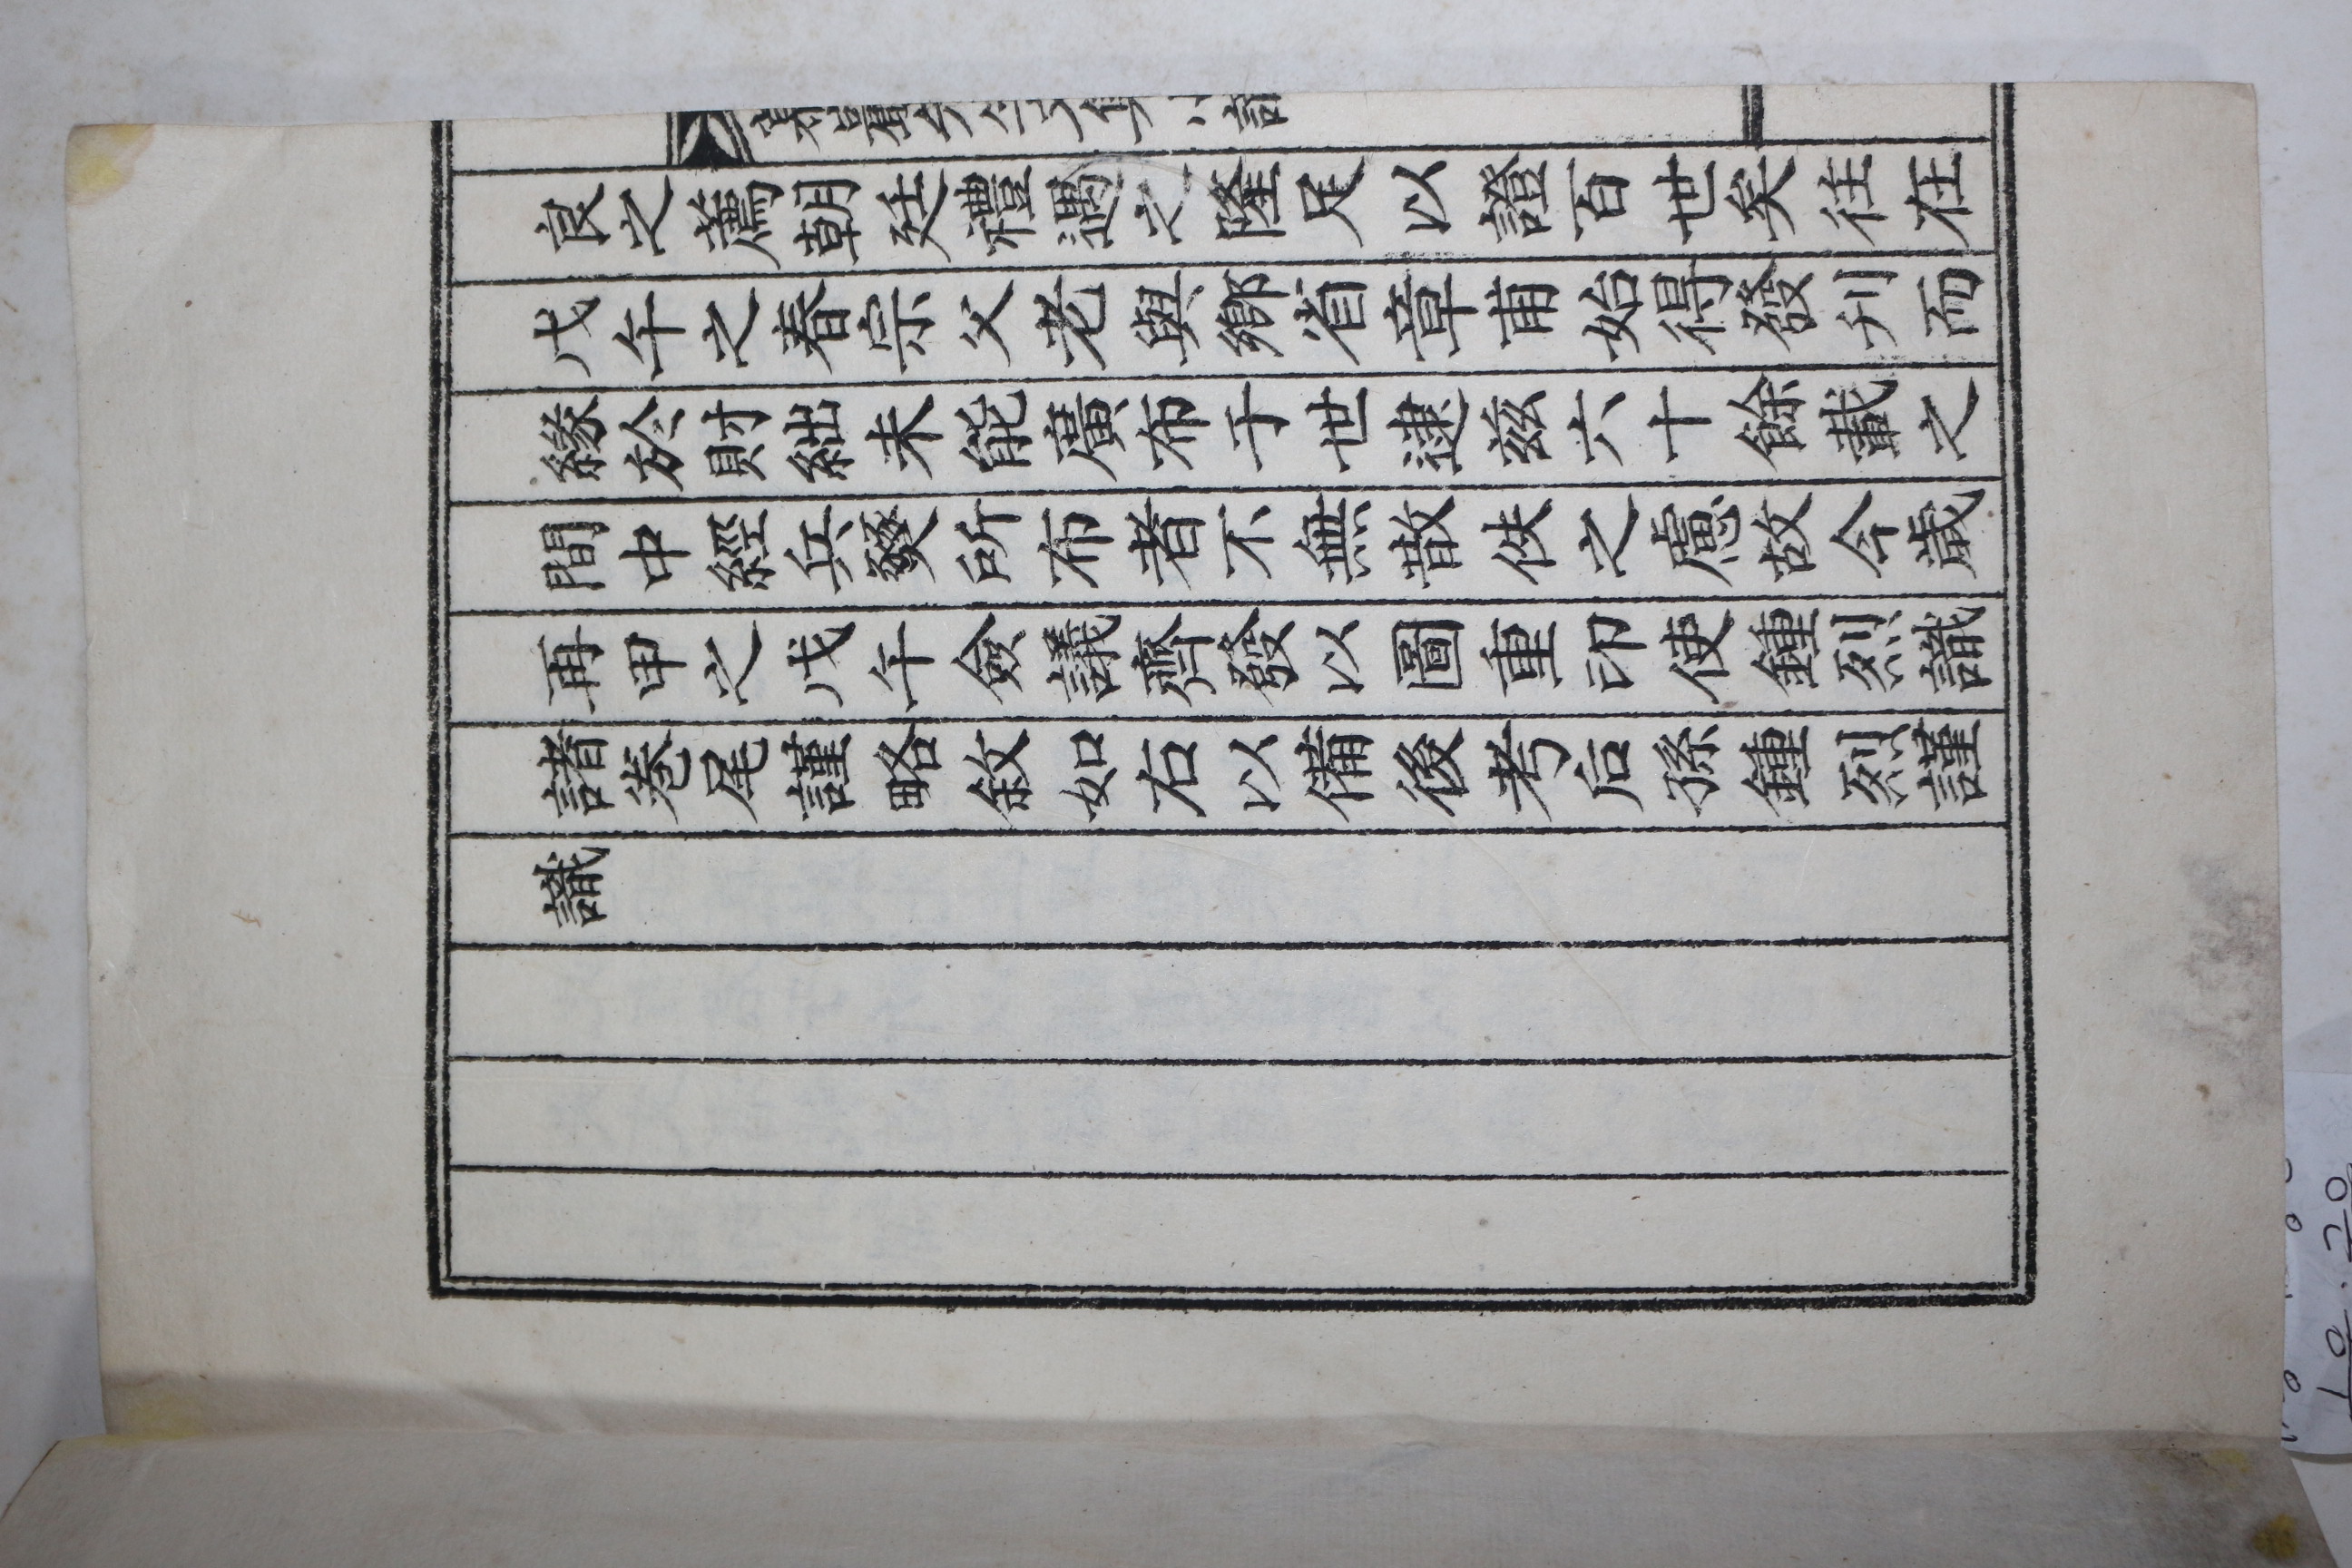 先生文集
良之薦朝廷禮遇之隆足以證百世矣往在
戊午之春宗父老與鄉省章甫始得發刊而
緣於財絀未能廣布于世逮玆六十餘載之
間中經兵燹所布者不無散佚之慮故今歲
再甲之戊午僉議齊發以圖重印使鍾烈識
諸卷尾謹略敘如右以備後考后孫鍾烈謹
識
10.20